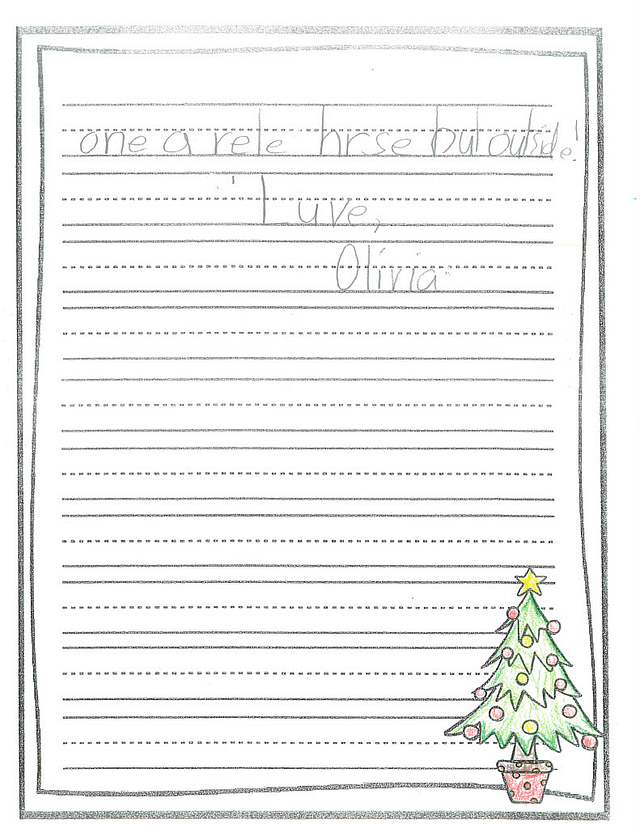 one a rele hrse but outside!
Luve,
Olivia